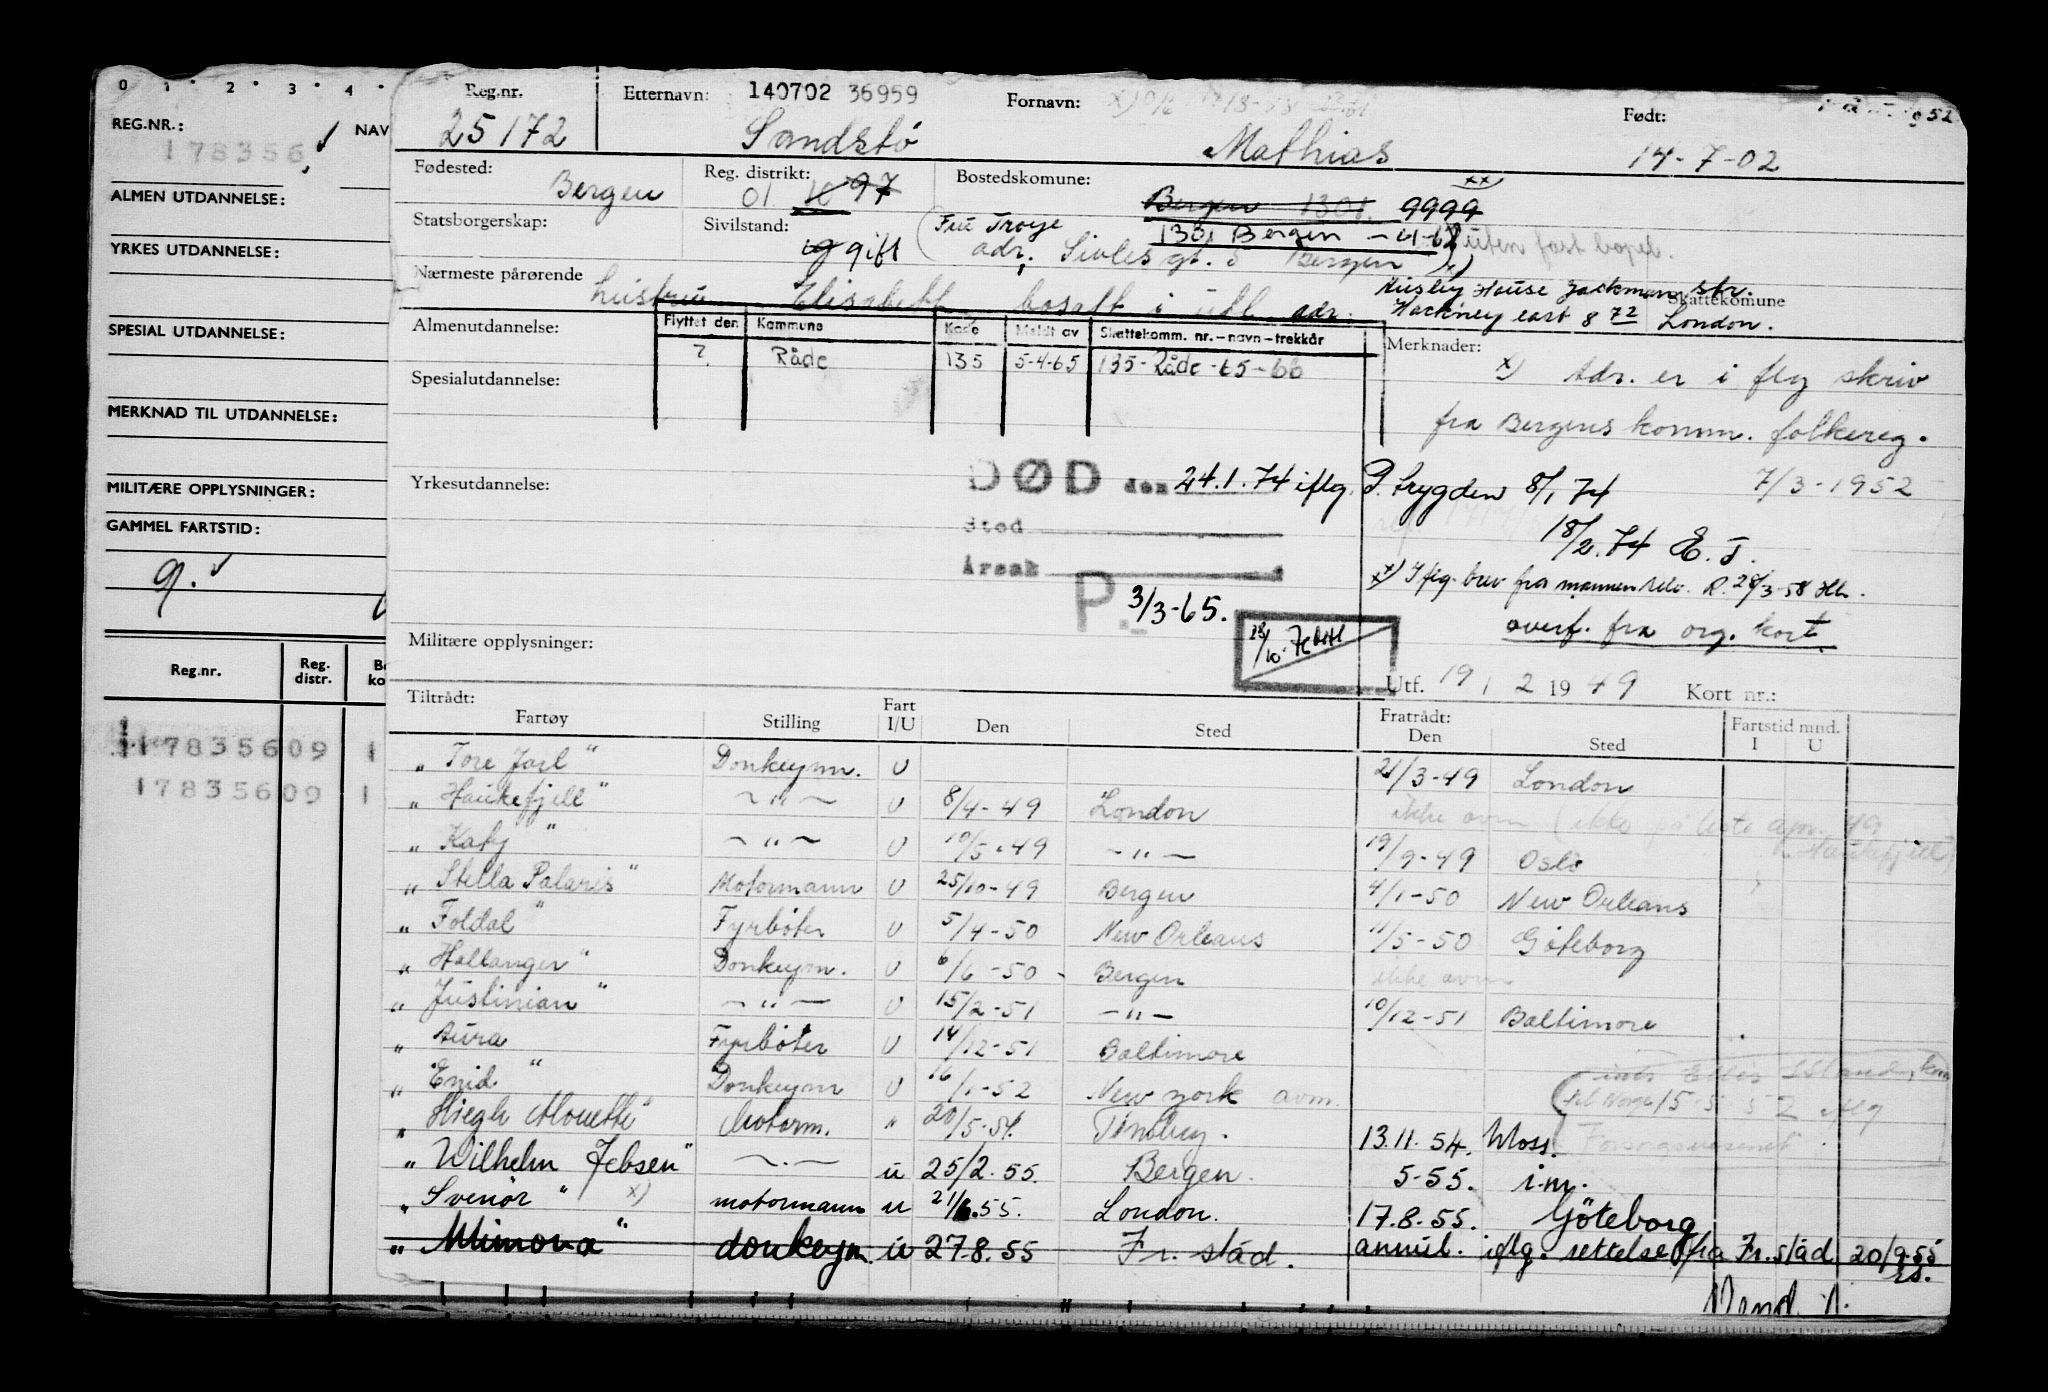 0 1 2 3 4
REG.NR.:
178356
NAV
ALMEN UTDANNELSE:
YRKES UTDANNELSE:
SPESIAL UTDANNELSE:
MERKNAD TIL UTDANNELSE:
MILITÆRE OPPLYSNINGER:
GAMMEL FARTSTID:
g.
Reg.nr. Reg. distr. B ko
17835609 1
17835609 1
Reg.nr. Etternavn: 140702 36959 Fornavn: Født: 52
25172 Sandstø Mathias 14-7-02
Fødested: Bergen Reg. distrikt: 01 10 97 Bostedskomune: Bergen 1301 9999 xx)
Statsborgerskap: Sivilstand: ug gift (Fru Troye 1301 Bergen - 4-62 uten fast bopel.
adr. Sivlesgt. 5 Bergen) x)
Nærmeste pårørende hustru Elisabeth bosatt i utl. adr. House Jackman str. Skattekomune
Hackney east 8 72 London.
Almenutdannelse: Flyttet den Kommune Kode Meldt av Skattekomm. nr.-navn-trekkår Merknader:
? Råde 135 5-4-65 135-Råde-65-66 x) Adr. er i flg skriv
Spesialutdannelse: fra Bergens komm. folkereg.
7/3-1952
Yrkesutdannelse: DØD den 24.1.74 iflg. P. trygden 8/1 74
Sted 18/2.74 E.J.
Årsak xx) Iflg. brev fra mannen R. 28/3-58
P. 3/3-65.
overf. fra org. kort
Militære opplysninger:
Utf. 19/2 1949 Kort nr.:
Tiltrådt: Fratrådt: Fartstid mnd.
Fartøy Stilling Fart I/U Den Sted Den Sted I U
„ Tore Jarl" Donkeym. U 21/3-49 London
„ Haukefjell" -"- U 8/4-49 London ikke avm (ikke på liste apr. 49 Haukefjell)
„ Katy" -"- U 10/5-49 -"- 19/9-49 Oslo
„ Stella Polaris" Motormann U 25/10-49 Bergen 4/1-50 New Orleans
„ Foldal" Fyrbøter U 5/4-50 New Orleans 11/5-50 Göteborg
„ Hallanger" Donkeym. U 6/6-50- Bergen ikke avm
„ Justinian" -"- U 15/2-51 -"- 10/12-51 Baltimore
„ Aura Fyrbøter U 14/12-51 Baltimore
„ Enid" Donkeym U 16/1-52 New York avm. (ints Ellis Island, kom til Norge 15-5-52 iflg
„ Høegh Mouette" Motorm. " 20/5-54. Tønsberg. 13.11.54. Moss.
„ Wilhelm Jebsen" -"- u 25/2.55. Bergen. 5-55. i.m.
„ Svenör" x) motormann u 21/6.55. London. 17.8.55. Göteborg
„ Mimona" donkeym. u 27.8.55 Fr.stad. annul. iflg. rettelse fra Fr.stad 20/9.55
Vend.